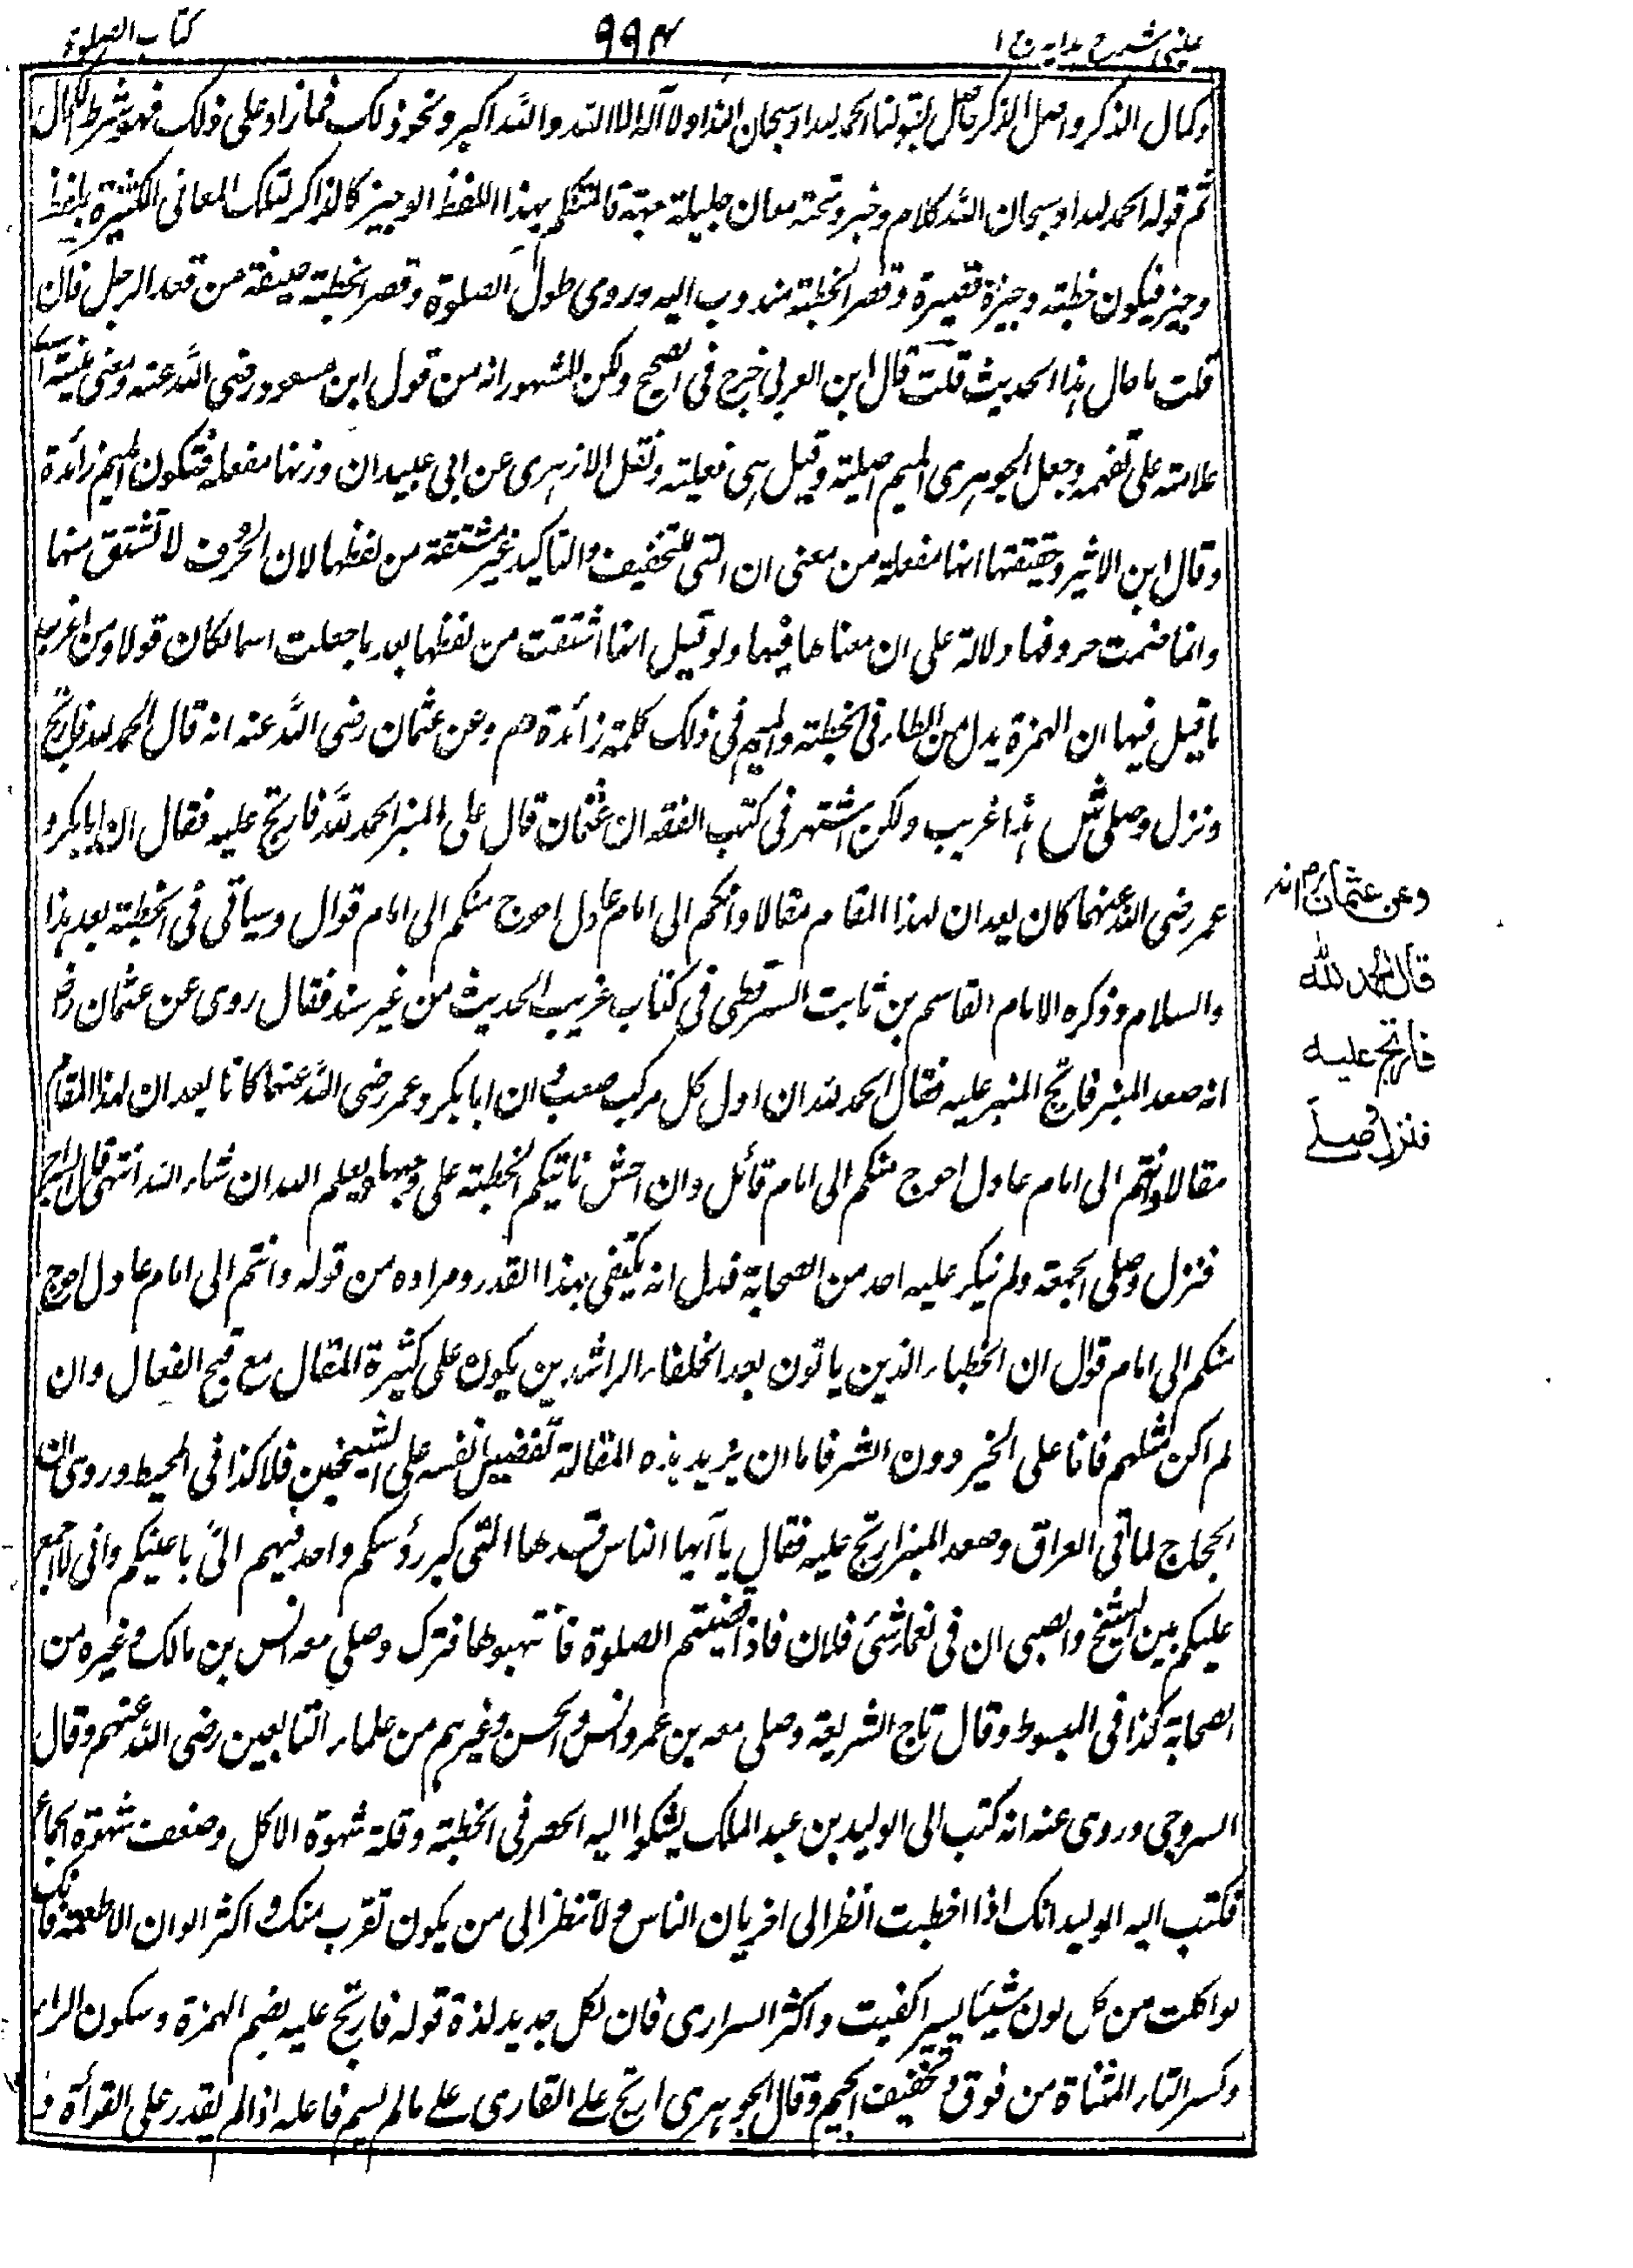 عینی شرح ہدایہ ج ١
٩٩٤
کتاب الصلوة
وکمال الذکر واصل الذکر حاصل بقولنا الحمد لله او سبحان الله او لا اله الا الله والله اکبر ونحو ذلک فما زاد علی ذلک فهو شرط الکمال
ثم قوله الحمد لله او سبحان الله کلام وخبر وتحته معان جلیلة جمة فالمتکلم بهذا اللفظ الوجیز کالذاکر لتلک المعانی الکثیرة بلفظ
وجیز فیکون خطبته وجیزة قصیرة وقصر الخطبة مندوب الیه وروی طول الصلوة وقصر الخطبة مئنة من فقه الرجل فان
قلت ما حال هذا الحدیث قلت قال ابن العربی خرج فی الصحیح ولکن المشهور انه من قول ابن مسعود رضی الله عنه ومعنی مئنة ای
علامته علی تفهمه وجعل الجوهری المیم اصلیة وقیل هی فعلیة ونقل الازهری عن ابی عبید ان وزنها مفعلة فتکون المیم زائدة
وقال ابن الاثیر وحقیقتها انها مفعلة من معنی ان التی للتحقیق والتاکید غیر مشتقة من لفظها لان الحروف لا تشتق منها
وانما ضمنت حروفها دلالة علی ان معناها فیها ولو قیل انها اشتقت من لفظها بعد ما جعلت اسما لکان قولا ومن اغرب
ما قیل فیها ان الهمزة بدل من الظاء فی الخطبة والمیم فی ذلک کلمة زائدة هم وعن عثمان رضی الله عنه انه قال الحمد لله فارتج
ونزل وصلی ش هذا غریب ولکن اشتهر فی کتب الفقه ان عثمان قال علی المنبر الحمد لله فارتج علیه فقال ان ابا بکر و
عمر رضی الله عنهما کان یعدان لهذا المقام مقالا وانکم الی امام عادل احوج منکم الی امام قوال وسیاتی فی الخطبة بعد هذا
والسلام وذکره الامام القاسم بن ثابت السرقسطی فی کتاب غریب الحدیث من غیر سند فقال روی عن عثمان رض
انه صعد المنبر فارتج علیه فقال الحمد لله ان اول کل مرکب صعب وان ابا بکر وعمر رضی الله عنهما کانا یعدان لهذا المقام
مقالا وانتم الی امام عادل احوج منکم الی امام قائل وان اعش تاتیکم الخطبة علی وجهها ویعلم الله ان شاء الله انتهی
فنزل وصلی الجمعة ولم ینکر علیه احد من الصحابة فدل انه یکتفی بهذا القدر ومراده من قوله وانتم الی امام عادل احوج
منکم الی امام قوال ان الخطباء الذین یاتون بعد الخلفاء الراشدین یکون علی کثیرة المقال مع قبح الفعال وان
لم اکن مثلهم فانا علی الخیر دون الشر فاما ان یرید بهذه المقالة تفضیل نفسه علی الشیخین فلا کذا فی المحیط وروی ان
الحجاج لما اتی العراق وصعد المنبر ارتج علیه فقال یا ایها الناس قد هالنی کبر رؤسکم واحد فیهم الی باعینکم وانی لا اجمع
علیکم بین الشیخ والصبی ان فی نعما شئ فلان فاذا قضیتم الصلوة فانتهبوها فترک وصلی معه انس بن مالک وغیره من
الصحابة کذا فی المبسوط وقال تاج الشریعة وصلی معه بن عمر وانس والحسن وغیرهم من علماء التابعین رضی الله عنهم وقال
السروجی وروی عنه انه کتب الی الولید بن عبد الملک یشکوا الیه الحصر فی الخطبة وقلة شهوة الاکل وضعف شهوة الجماع
فکتب الیه الولید انک اذا خطبت انظر الی اخریات الناس ولا تنظر الی من یکون تقرب منک و اکثر الوان الاطعمة فانک
لو اکلت من کل لون شیئا یسیرا کفیت و اکثر السراری فان لکل جدید لذة قوله فارتج علیه بضم الهمزة وسکون الراء
وکسر التاء المثناة من فوق وتخفیف الجیم وقال الجوهری ارتج علی القاری علی ما لم یسم فاعله اذا لم یقدر علی القرأة
وعن عثمان رض انه
قال الحمد لله
فارتج علیه
فنزل وصلی